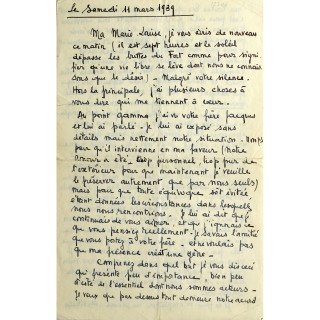 Le Samedi 11 mars 1939
Ma Marie Louise, je vous écris de nouveau
ce matin (il est sept heures et le soleil
dépasse les buttes du Fort comme pour signi-
fier qu'une vie libre se lève dont nous ne connais
sons que le désir) - Malgré votre silence.
Hors la principale, j'ai plusieurs choses à
vous dire qui me tiennent à cœur.
Au point gamma j'ai vu votre frère Jacques
et lui ai parlé. Je lui ai exposé sans
détails mais nettement notre situation - Non pas
pour qu'il intervienne en ma faveur (notre
amour a été trop personnel, trop pur de
l'extérieur pour que maintenant je veuille
le préserver autrement que par nous seuls)
mais pour que toute équivoque soit évitée
étant données les circonstances dans lesquelles
nous nous rencontrions. Je lui ai dit que je
continuais de vous aimer et que j'ignorais ce
que vous pensiez réellement - Je savais l'amitié
que vous portez à votre frère - et ne voulais pas
que ma présence créât une gêne -
Comprenez dans quel but je vous dis ceci
qui présente peu d'importance, bien peu
à côté de l'essentiel dont nous sommes acteurs -
Je veux que par dessus tout demeure notre